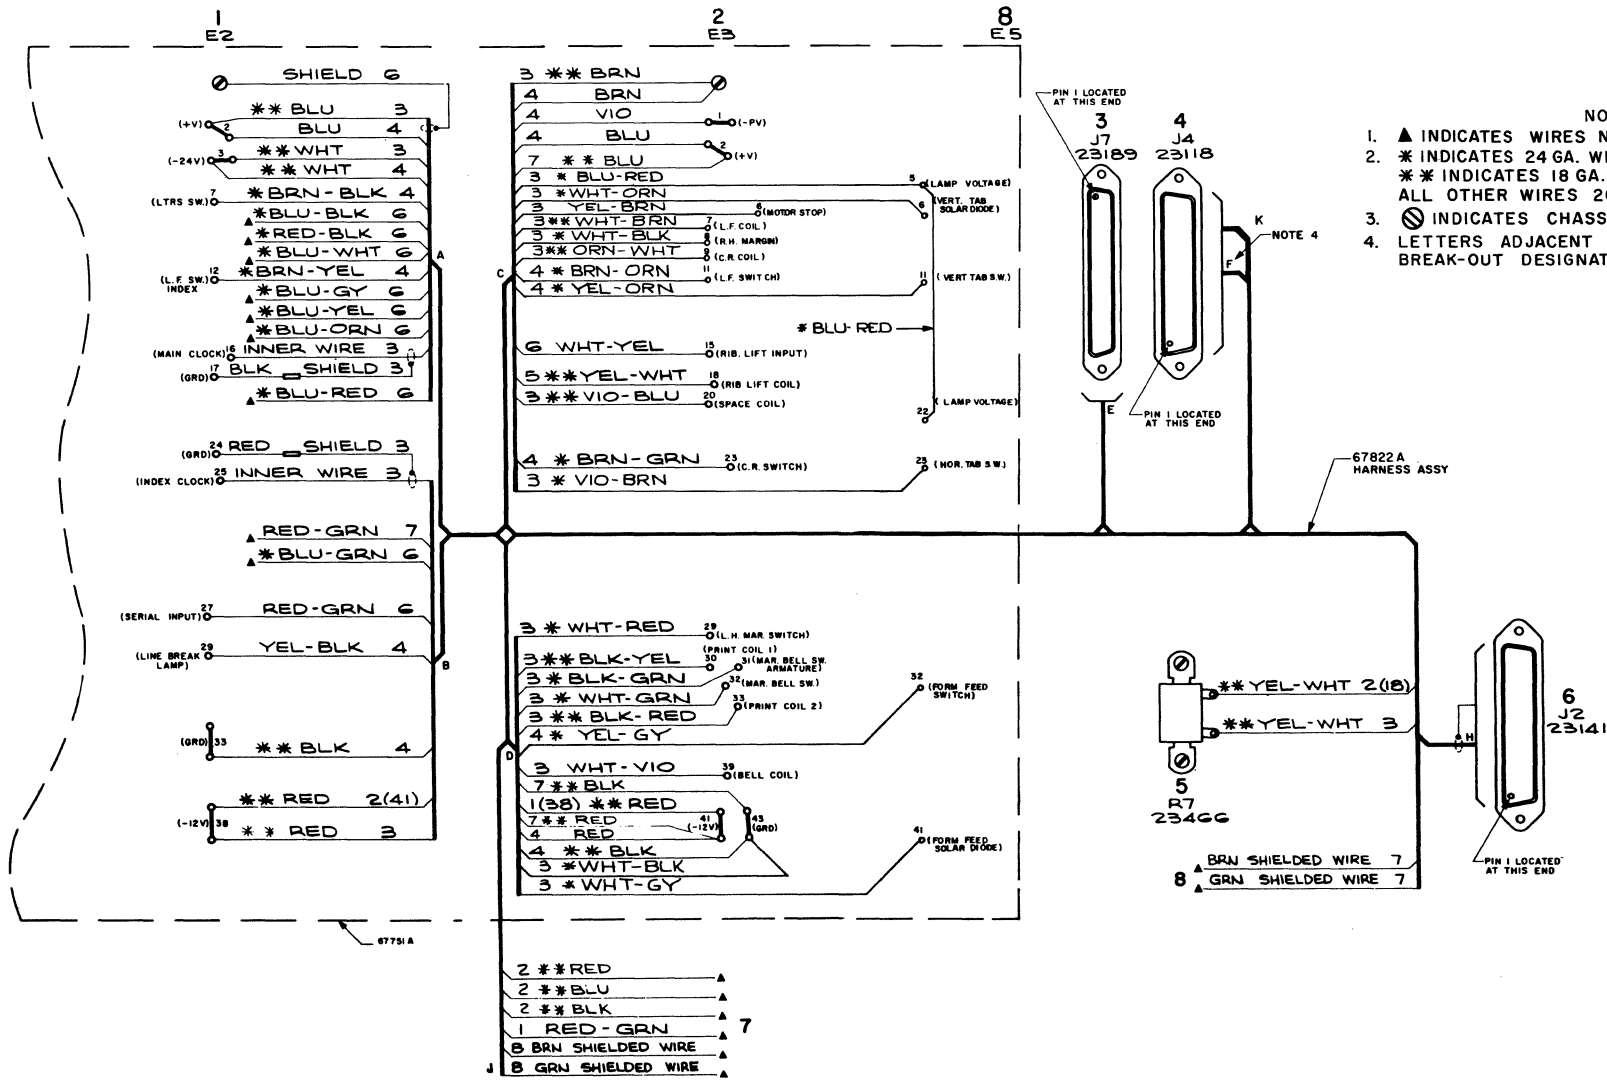 1
E2
2
E3
8
E5
SHIELD 6
** BLU 3
(+V)
2
BLU 4
** WHT 3
(-24V)
3
** WHT 4
7
(LTRS SW.)
*BRN-BLK 4
▲ *BLU-BLK 6
▲ *RED-BLK 6
▲ *BLU-WHT 6
A
12
*BRN-YEL 4
(L.F. SW.)
INDEX
▲ *BLU-GY 6
▲ *BLU-YEL 6
▲ *BLU-ORN 6
(MAIN CLOCK) 16 INNER WIRE 3
(GRD) 17 BLK SHIELD 3
▲ *BLU-RED 6
(GRD) 24 RED SHIELD 3
(INDEX CLOCK) 25 INNER WIRE 3
▲ RED-GRN 7
▲ *BLU-GRN 6
(SERIAL INPUT) 27 RED-GRN 6
(LINE BREAK
LAMP)
29
YEL-BLK 4
B
(GRD) 33
** BLK 4
** RED 2(41)
(-12V) 38
** RED 3
67751A
3 ** BRN
4 BRN
4 VIO
1 (-PV)
4 BLU
2
(+V)
7 ** BLU
3 * BLU-RED
5 (LAMP VOLTAGE)
3 *WHT-ORN
6
(VERT. TAB
SOLAR DIODE)
3 YEL-BRN
6 (MOTOR STOP)
3 ** WHT-BRN
7 (L.F. COIL)
3 * WHT-BLK
8 (R.H. MARGIN)
3 ** ORN-WHT
9 (C.R. COIL)
C
4 * BRN-ORN
11 (L.F. SWITCH)
4 * YEL-ORN
11 (VERT TAB S.W.)
* BLU-RED
6 WHT-YEL
15 (RIB. LIFT INPUT)
5 ** YEL-WHT
18 (RIB LIFT COIL)
3 ** VIO-BLU
20 (SPACE COIL)
(LAMP VOLTAGE)
22
4 * BRN-GRN
23 (C.R. SWITCH)
23 (HOR. TAB S.W.)
3 * VIO-BRN
3 * WHT-RED
29 (L.H. MAR. SWITCH)
(PRINT COIL 1)
3 ** BLK-YEL
30
31 (MAR. BELL SW.
ARMATURE)
3 * BLK-GRN
32 (MAR. BELL SW.)
3 * WHT-GRN
33 (PRINT COIL 2)
3 ** BLK-RED
4 * YEL-GY
32 (FORM FEED
SWITCH)
D
3 WHT-VIO
39 (BELL COIL)
7 ** BLK
1(38) ** RED
41
(-12V)
43
(GRD)
7 ** RED
4 RED
4 ** BLK
41 (FORM FEED
SOLAR DIODE)
3 *WHT-BLK
3 *WHT-GY
2 **RED ▲
2 **BLU ▲
2 **BLK ▲
1 RED-GRN ▲
7
8 BRN SHIELDED WIRE ▲
J
8 GRN SHIELDED WIRE ▲
PIN 1 LOCATED
AT THIS END
3
J7
23189
4
J4
23118
E
PIN 1 LOCATED
AT THIS END
K
NOTE 4
F
67822A
HARNESS ASSY
** YEL-WHT 2(18)
** YEL-WHT 3
5
R7
23466
H
6
J2
23141
PIN 1 LOCATED
AT THIS END
▲ BRN SHIELDED WIRE 7
8
▲ GRN SHIELDED WIRE 7
NO
1. ▲ INDICATES WIRES N
2. * INDICATES 24 GA. WI
** INDICATES 18 GA.
ALL OTHER WIRES 2
3. INDICATES CHASS
4. LETTERS ADJACENT
BREAK-OUT DESIGNAT